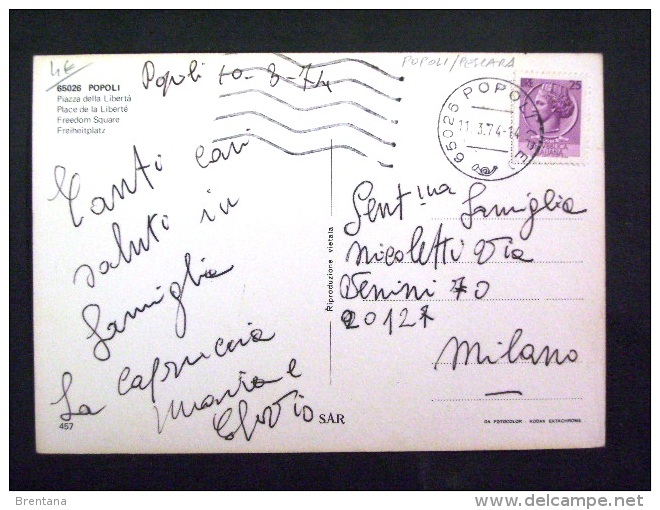 4€
65026 POPOLI
Piazza della Libertá
Place de la Liberté
Freedom Square
Freiheitplatz
Popoli 10-3-74
POPOLI/PESCARA
65026 POPOLI
11.3.74-14
LIRE 25
Tanti cari
saluti in
famiglia
La
Maria e
457
Riproduzione vietata
Gent.ma famiglia
Nicoletti Via
70
20127
Milano
S.A.R.
DA FOTOCOLOR - KODAK EKTACHROME
Brentana
delcampe.net